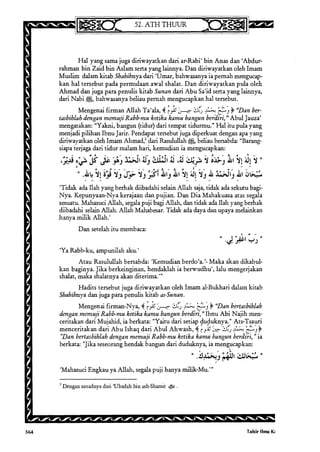 52. ATH THUUR
Hal yang sama juga diriwayatkan dari ar-Rabi' bin Anas dan 'Abdur-
rahman bin Zaid bin Aslam serta yang lainnya. Dan diriwayatkan oleh Imam
Muslim dalam kitab Shahihnya dari 'Umar, bahwasanya ia pernah mengucap-
kan hal tersebut pada permulaan awal shalat. Dan diriwayatkan pula oleh
Ahmad dan juga para penulis kitab Sunan dari Abu Sa'id serta yang lainnya,
dari Nabi ﷺ, bahwasanya beliau pernah mengucapkan hal tersebut.
Mengenai firman Allah Ta'ala, ﴿ وَسَبِّحْ بِحَمْدِ رَبِّكَ حِينَ تَقُومُ ﴾ "Dan ber-
tasbihlah dengan memuji Rabb-mu ketika kamu bangun berdiri," Abul Jauza'
mengatakan: "Yakni, bangun (tidur) dari tempat tidurmu." Hal itu pula yang
menjadi pilihan Ibnu Jarir. Pendapat tersebut juga diperkuat dengan apa yang
diriwayatkan oleh Imam Ahmad,² dari Rasulullah ﷺ, beliau bersabda: "Barang-
siapa terjaga dari tidur malam hari, kemudian ia mengucapkan:
" لاَ إِلَهَ إِلاَّ اللهُ وَحْدَهُ لاَ شَرِيكَ لَهُ، لَهُ الْمُلْكُ وَلَهُ الْحَمْدُ وَهُوَ عَلَى كُلِّ شَيْءٍ قَدِيرٌ،
سُبْحَانَ اللهِ وَالْحَمْدُ لِلَّهِ وَلاَ إِلَهَ إِلاَّ اللهُ وَاللهُ أَكْبَرُ وَلاَ حَوْلَ وَلاَ قُوَّةَ إِلاَّ بِاللهِ. "
'Tidak ada Ilah yang berhak diibadahi selain Allah saja, tidak ada sekutu bagi-
Nya. Kepunyaan-Nya kerajaan dan pujian. Dan Dia Mahakuasa atas segala
sesuatu. Mahasuci Allah, segala puji bagi Allah, dan tidak ada Ilah yang berhak
diibadahi selain Allah. Allah Mahabesar. Tidak ada daya dan upaya melainkan
hanya milik Allah.'
Dan setelah itu membaca:
" رَبِّ اغْفِرْ لِي. "
'Ya Rabb-ku, ampunilah aku.'
Atau Rasulullah bersabda: 'Kemudian berdo'a.'- Maka akan dikabul-
kan baginya. Jika berkeinginan, hendaklah ia berwudhu', lalu mengerjakan
shalat, maka shalatnya akan diterima.'"
Hadits tersebut juga diriwayatkan oleh Imam al-Bukhari dalam kitab
Shahihnya dan juga para penulis kitab as-Sunan.
Mengenai firman-Nya, ﴿ وَسَبِّحْ بِحَمْدِ رَبِّكَ حِينَ تَقُومُ ﴾ "Dan bertasbihlah
dengan memuji Rabb-mu ketika kamu bangun berdiri," Ibnu Abi Najih men-
ceritakan dari Mujahid, ia berkata: "Yaitu dari setiap duduknya." Ats-Tsauri
menceritakan dari Abu Ishaq dari Abul Ahwash, ﴿ وَسَبِّحْ بِحَمْدِ رَبِّكَ حِينَ تَقُومُ ﴾
"Dan bertasbihlah dengan memuji Rabb-mu ketika kamu bangun berdiri," ia
berkata: "Jika seseorang hendak bangun dari duduknya, ia mengucapkan:
" سُبْحَانَكَ اللَّهُمَّ وَبِحَمْدِكَ. "
'Mahasuci Engkau ya Allah, segala puji hanya milik-Mu.'"
² Dengan sanadnya dari 'Ubadah bin ash-Shamit
564
Tafsir Ibnu K